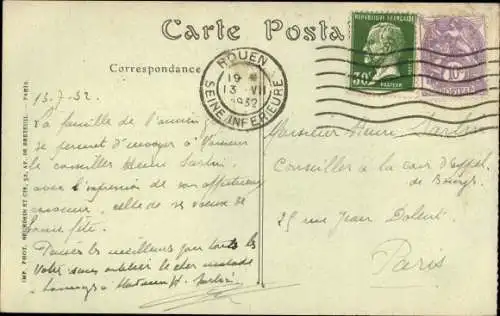 Carte Postale
Correspondance
ROUEN
19
13 VII
1932
SEINE INFERIEURE
REPUBLIQUE FRANÇAISE
30c
PASTEUR
10
POSTES
IMP. PHOT. NEURDEIN ET CIE, 52, AV. DE BRETEUIL. PARIS.
13.7.32
La famille de l'
se permet d'envoyer à Monsieur
le conseiller Henri
avec l'expression de son affectueux
souvenir, celle de ses voeux de
bonne fête.
Pensées les meilleures pour toute les
sans oublier le cher malade
hommages à Madame H.
Monsieur Henri
Conseiller à la cour d'appel
de Bourges
25 rue Jean Dolent
Paris